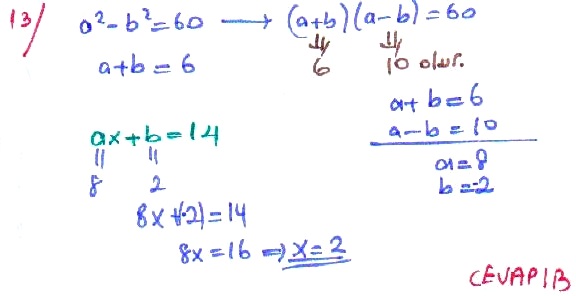 13/ a²-b²=60 → (a+b)(a-b)=60
a+b=6
6 10 olur.
a+b=6
a-b=10
a=8
b=-2
ax+b=14
8 2
8x+(-2)=14
8x=16 ⇒ x=2
CEVAP B